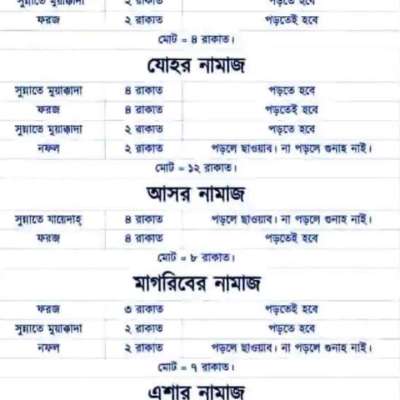 সুন্নাতে মুয়াক্কাদা ২ রাকাত পড়তে হবে
ফরজ ২ রাকাত পড়তেই হবে
মোট = ৪ রাকাত।
যোহর নামাজ
সুন্নাতে মুয়াক্কাদা ৪ রাকাত পড়তে হবে
ফরজ ৪ রাকাত পড়তেই হবে
সুন্নাতে মুয়াক্কাদা ২ রাকাত পড়তে হবে
নফল ২ রাকাত পড়লে ছাওয়াব। না পড়লে গুনাহ নাই।
মোট = ১২ রাকাত।
আসর নামাজ
সুন্নাতে যায়েদাহ্ ৪ রাকাত পড়লে ছাওয়াব। না পড়লে গুনাহ নাই।
ফরজ ৪ রাকাত পড়তেই হবে
মোট = ৮ রাকাত।
মাগরিবের নামাজ
ফরজ ৩ রাকাত পড়তেই হবে
সুন্নাতে মুয়াক্কাদা ২ রাকাত পড়তে হবে
নফল ২ রাকাত পড়লে ছাওয়াব। না পড়লে গুনাহ নাই।
মোট = ৭ রাকাত।
এশার নামাজ